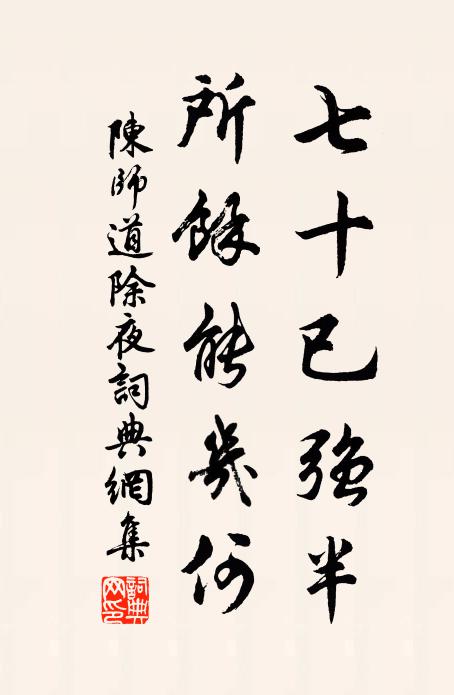 七十已強半
所餘能幾何
陳師道除夜詞典網集
詞典
网印